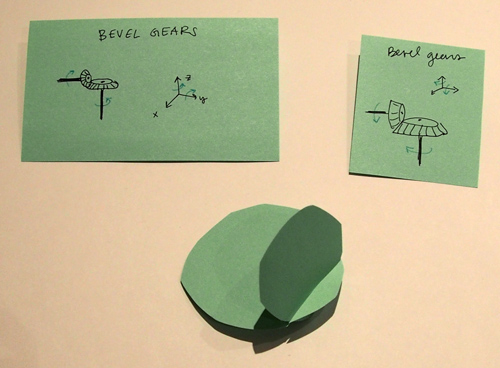 BEVEL GEARS
z
y
x
Bevel gears